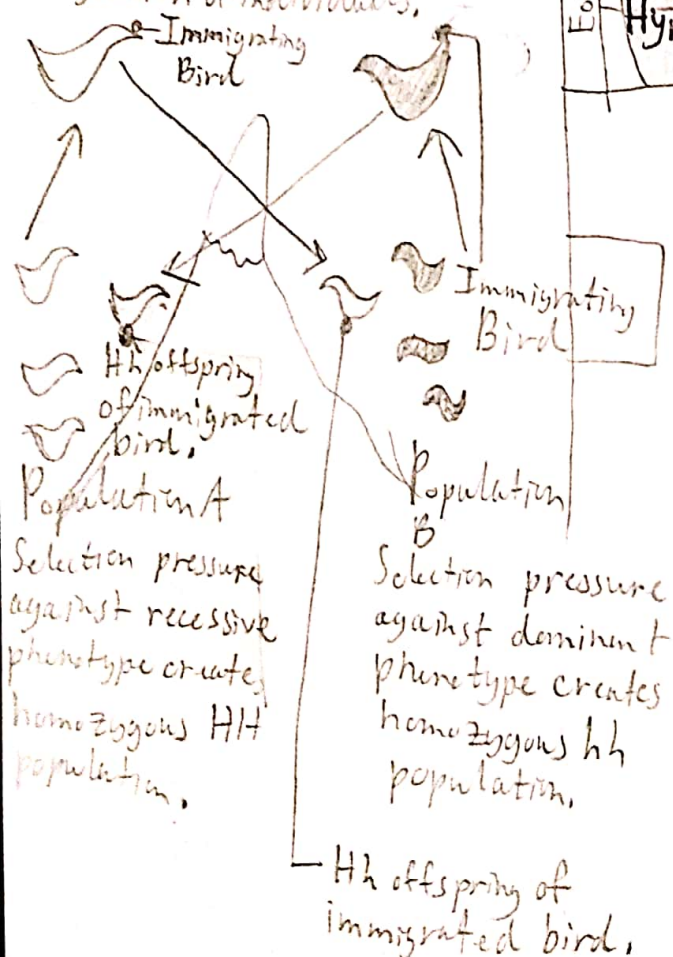 of individuals.
Immigrating
Bird
Immigrating
Bird
Hh offspring
of immigrated
bird.
Population A
Selection pressure
against recessive
phenotype creates
homozygous HH
population.
Population
B
Selection pressure
against dominant
phenotype creates
homozygous hh
population.
Hh offspring of
immigrated bird.